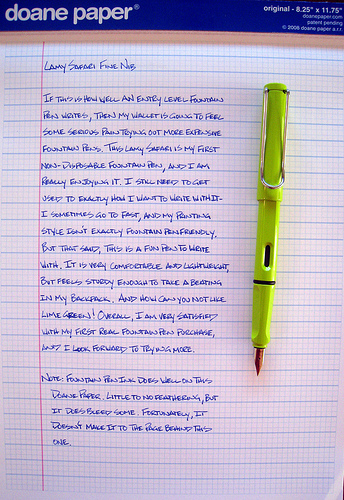 doane paper®
original - 8.25" x 11.75"
doanepaper.com
patent pending
© 2008 doane paper a.r.r.
LAMY SAFARI FINE NIB
IF THIS IS HOW WELL AN ENTRY LEVEL FOUNTAIN
PEN WRITES, THEN MY WALLET IS GOING TO FEEL
SOME SERIOUS PAIN TRYING OUT MORE EXPENSIVE
FOUNTAIN PENS. THIS LAMY SAFARI IS MY FIRST
NON-DISPOSABLE FOUNTAIN PEN, AND I AM
REALLY ENJOYING IT. I STILL NEED TO GET
USED TO EXACTLY HOW I WANT TO WRITE WITH IT-
I SOMETIMES GO TO FAST, AND MY PRINTING
STYLE ISN'T EXACTLY FOUNTAIN PEN FRIENDLY.
BUT THAT SAID, THIS IS A FUN PEN TO WRITE
WITH. IT IS VERY COMFORTABLE AND LIGHTWEIGHT,
BUT FEELS STURDY ENOUGH TO TAKE A BEATING
IN MY BACKPACK. AND HOW CAN YOU NOT LIKE
LIME GREEN! OVERALL, I AM VERY SATISFIED
WITH MY FIRST REAL FOUNTAIN PEN PURCHASE,
AND I LOOK FORWARD TO TRYING MORE.
NOTE: FOUNTAIN PEN INK DOES WELL ON THIS
DOANE PAPER. LITTLE TO NO FEATHERING, BUT
IT DOES BLEED SOME. FORTUNATELY, IT
DOESN'T MAKE IT TO THE PAGE BEHIND THIS
ONE.